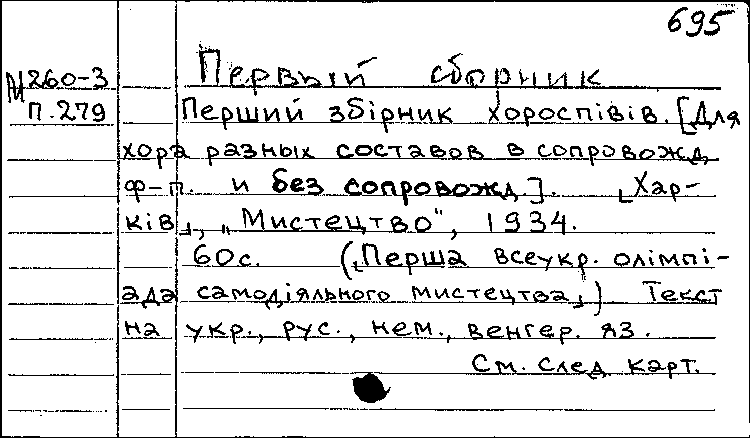 695
М 260-3 Первый сборник
П.279 Перший збірник хороспівів. [Для
хора разных составов в сопровожд.
ф-п. и без сопровожд.]. [Хар-
ків], „Мистецтво", 1934.
60с. ([Перша всеукр. олімпі-
ада самодіяльного мистецтва]) Текст
на укр., рус., нем., венгер. яз.
См. след. карт.